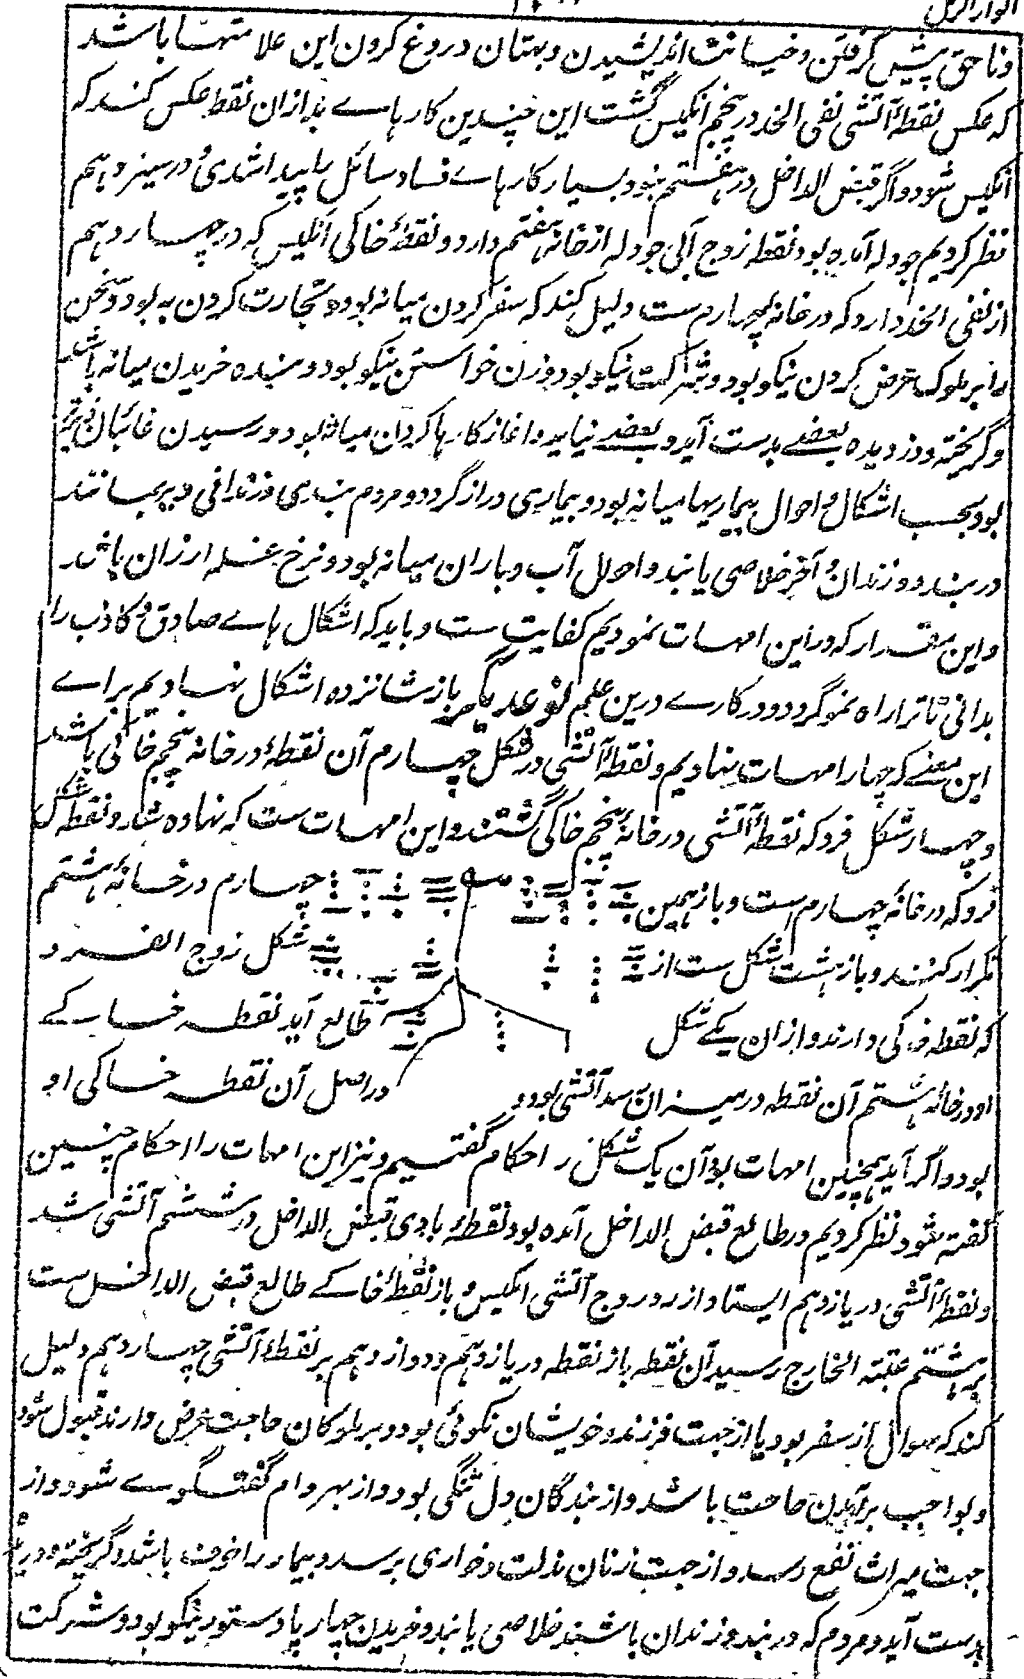 انوار الرمل
وناحق پیش گرفتن و خیانت اندیشیدن و بهتان دروغ کردن این علامتها باشد
که عکس نقطهٔ آتشی نقی الخد در پنجم انکیس گشت این چندین کارهاے بد ازان نقطه عکس کنند که
انکیس شود و اگر قبض الداخل در هفتم نبود بسیار کارهاے فساد سائل را پیدا شدی و در سیزدهم
نظر کردیم جودله آمده بود نقطه زوج آبی جودله از خانهٔ هفتم دارد و نقطهٔ خاکی انکیس که در چهاردهم
از نقی الخد دارد که در خانهٔ چهارم ست دلیل کند که سفر کردن میانه بود و تجارت کردن به بود و سخن
را بر ملوک عرض کردن نیکو بود و شرکت نیکو بود و زن خواستن نیکو بود و بنده خریدن میانه باشد
و گریخته و دزدیده بعضے بدست آید و بعضے نیاید و آغاز کارها کردن میانه بود و رسیدن غائبان
بود بحسب اشکال و احوال بیماریها میانه بود و بیماری دراز گردد و مردم بندی و زندانی دیر بمانند
در بند و زندان و آخر خلاصی یابند و احوال آب و باران میانه بود و نرخ غله ارزان باشد
و این مقدار که در این امهات نمودیم کفایت ست و باید که اشکال هاے صادق و کاذب را
بدانی تا ترا راه نموگردد در کارے درین علم نوعدیگر باز شانزده اشکال نهادیم براے
این معنے که چهار امهات بنهادیم و نقطهٔ آتشی در شکل چهارم آن نقطهٔ در خانهٔ پنجم خاکی باشد
و چهار شکل فرو که نقطهٔ آتشی در خانهٔ پنجم خاکی گشتند و این امهات ست که نهاده شد و نقطه شکل
فرو که در خانهٔ چهارم است و باز همین چهارم در خانهٔ هشتم
تکرار کنند و باز هشت شکل ست از شکل زوج الفرد
که نقطه خاکی دارند و ازان یکے شکل طالع آید نقطه خاکے
او در خانهٔ هشتم آن نقطه در میزان سد آتشی بود و در اصل آن نقطه خاکی او
بود و اگر آید همچنین امهات بود آن یک شکل را احکام گفتیم و نیز این امهات را احکام چنین
گفته شود نظر کردیم در طالع قبض الداخل آمده بود نقطهٔ بادی قبض الداخل در ششم آتشی شد
و نقطهٔ آتشی در یازدهم ایستاد از رد روح آتشی انکیس و باز نقطهٔ خاکے طالع قبض الداخل ست
بر هشتم عتبة الخارج رسید آن نقطه باز نقطه در یازدهم و دوازدهم بر نقطهٔ آتشی چهاردهم دلیل
کند که سوال از سفر بود یا از جهت فرزند و خویشان نکوئی بود و بر ملوکان حاجت عرض دارند قبول شود
و بواجب برآمدن حاجت باشد و از بندگان دل تنگی بود و از بهر وام گفتگوے شود و از
جهت میراث نفع رسد و از جهت زنان مذلت و خواری برسد و بیمار را خوف باشد و گریخته و دزدیده
بدست آید و مردم که در بند و زندان باشند خلاصی یابند و خریدن چهارپا و ستور نیکو بود و شرکت